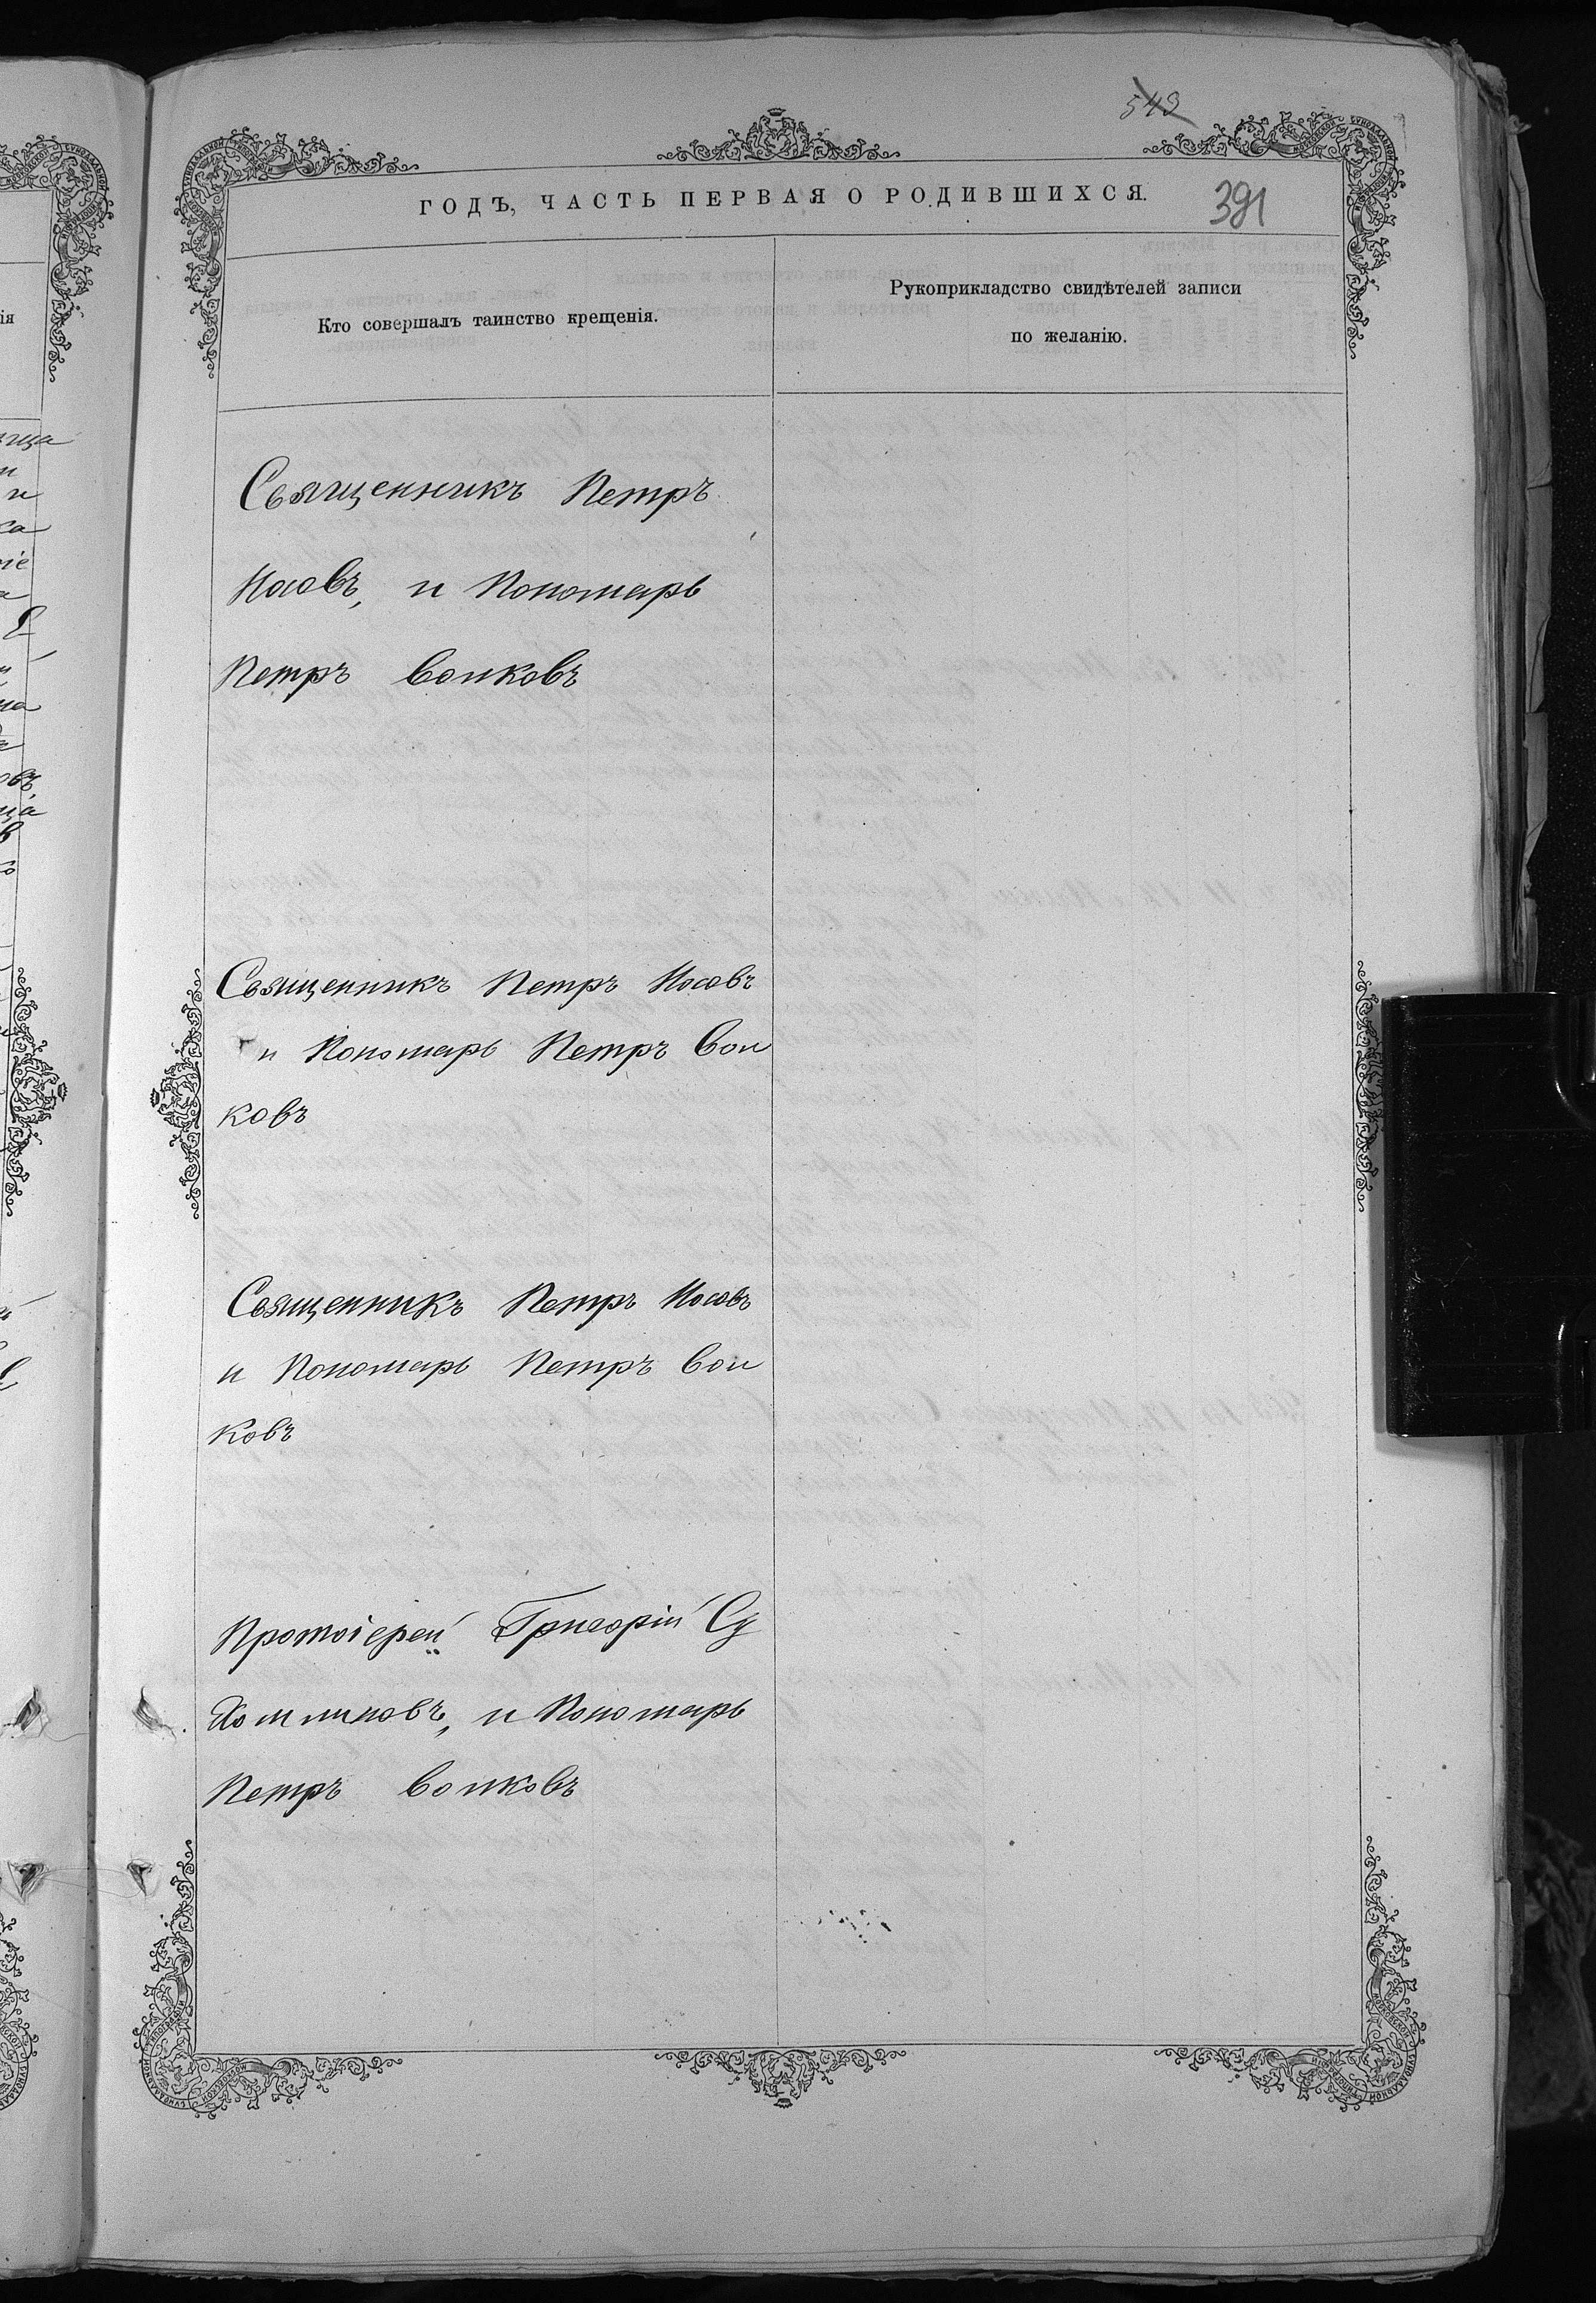 543
ГОДЪ, ЧАСТЬ ПЕРВАЯ О РОДИВШИХСЯ.
391
Кто совершалъ таинство крещенія.
Рукоприкладство свидѣтелей записи
по желанію.
Священникъ Петръ
Носовъ, и Пономарь
Петръ Воиковъ
Священникъ Петръ Носовъ
и Пономарь Петръ Вои
ковъ
Священникъ Петръ Носовъ
и Пономарь Петръ Вои
ковъ
Протоіерей Григорій Су
Хомлиновъ, и Пономарь
Петръ Воиковъ